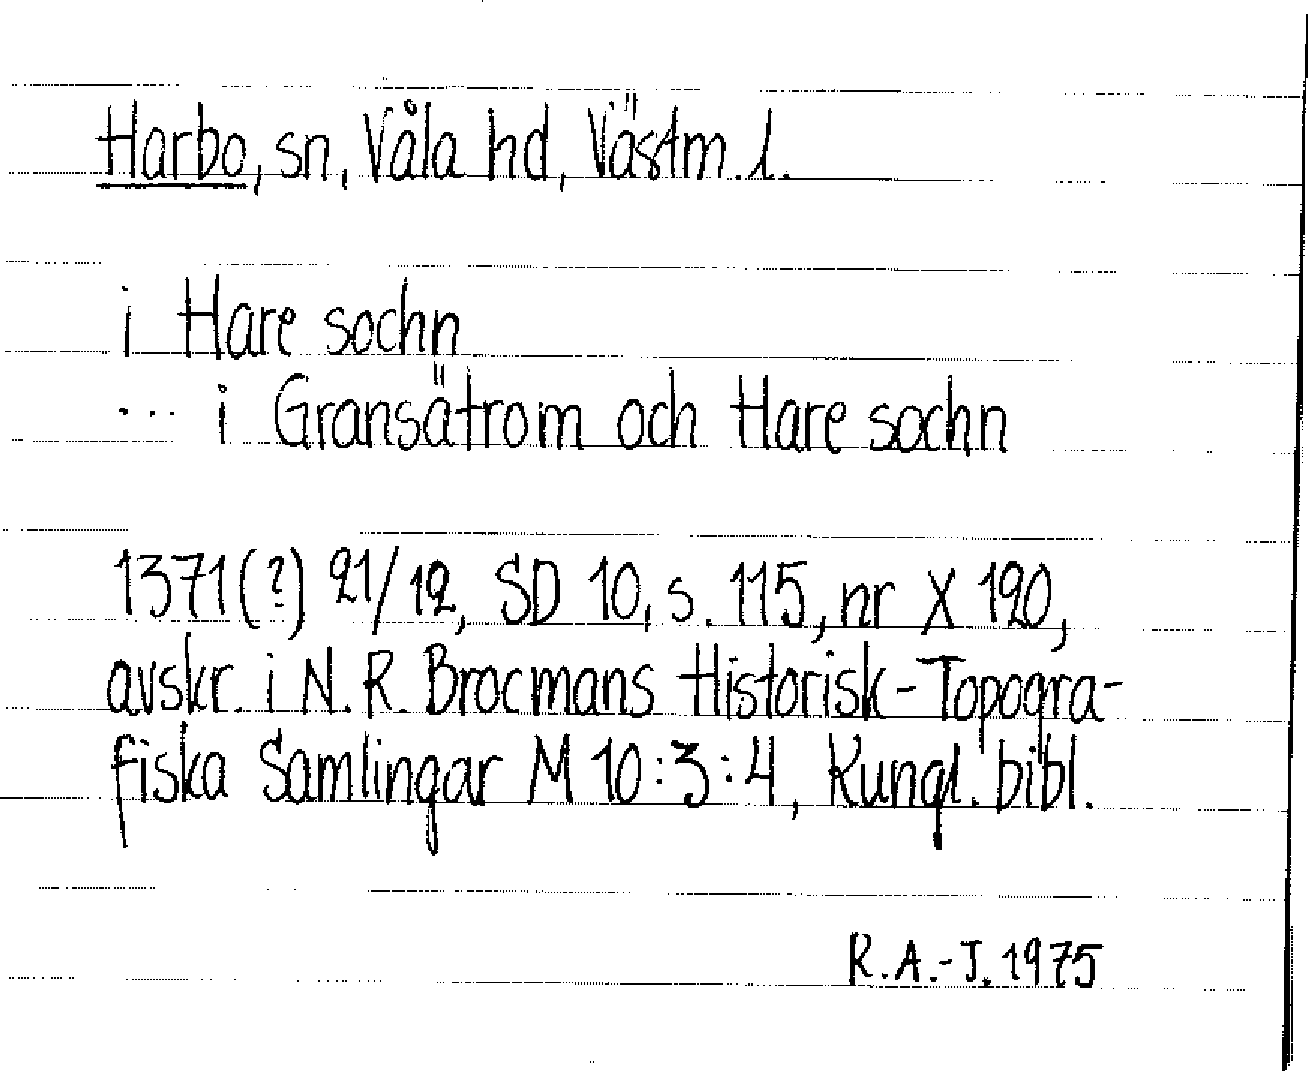 Harbo, sn, Våla hd, Västm. l.
i Hare sochn
... i Gransätrom och Hare sochn
1371(?) 21/12, SD 10, s. 115, nr X 120,
avskr. i N. R. Brocmans Historisk-Topogra-
fiska Samlingar M 10:3:4, Kungl. bibl.
R.A.-J. 1975